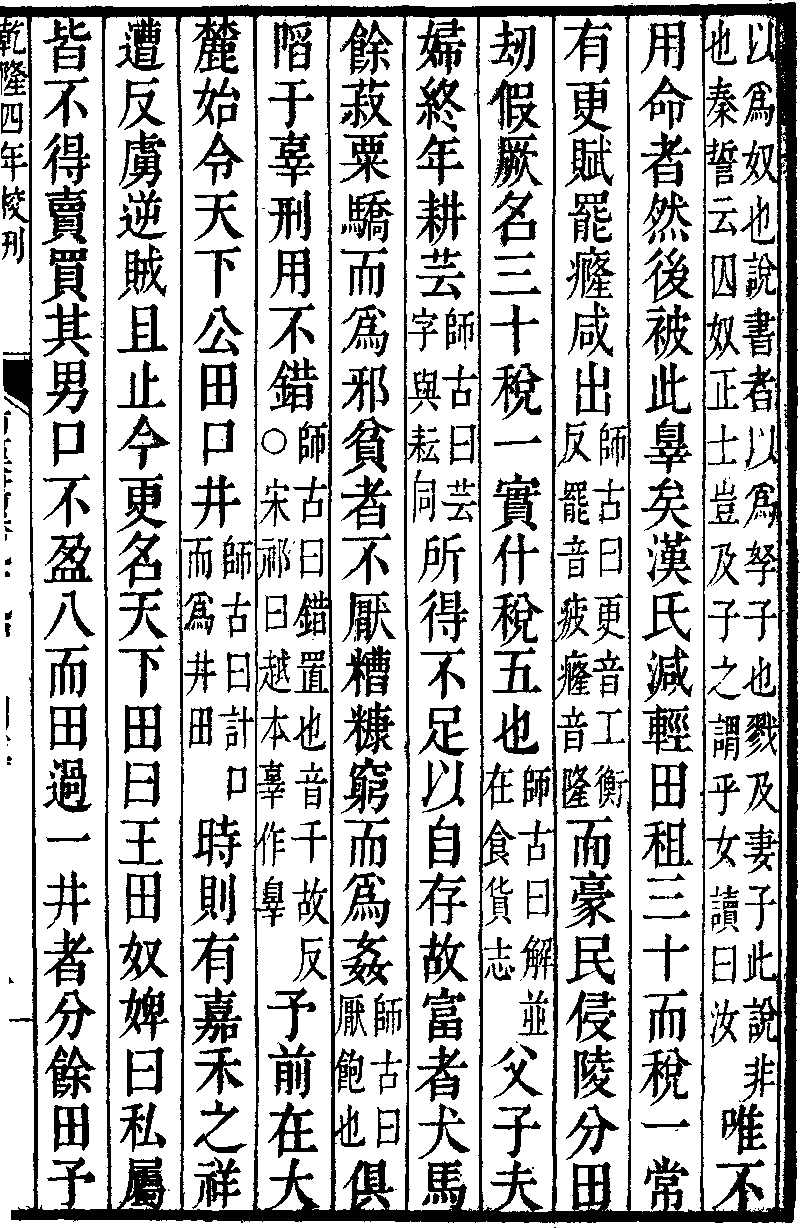 以爲奴也說書者以爲孥子也戮及妻子此說非也秦誓云囚奴正士豈及子之謂乎女讀曰汝唯不
用命者然後被此辠矣漢氏減輕田租三十而稅一常
有更賦罷癃咸出師古曰更音工衡反罷音疲癃音隆而豪民侵陵分田
劫假厥名三十稅一實什稅五也師古曰解並在食貨志父子夫
婦終年耕芸師古曰芸字與耘同所得不足以自存故富者犬馬
餘菽粟驕而爲邪貧者不厭糟糠窮而爲姦師古曰厭飽也俱
陷于辜刑用不錯師古曰錯置也音千故反○宋祁曰越本辜作辠予前在大
麓始令天下公田口井師古曰計口而爲井田時則有嘉禾之祥
遭反虜逆賊且止今更名天下田曰王田奴婢曰私屬
皆不得賣買其男口不盈八而田過一井者分餘田予
乾隆四年校刊